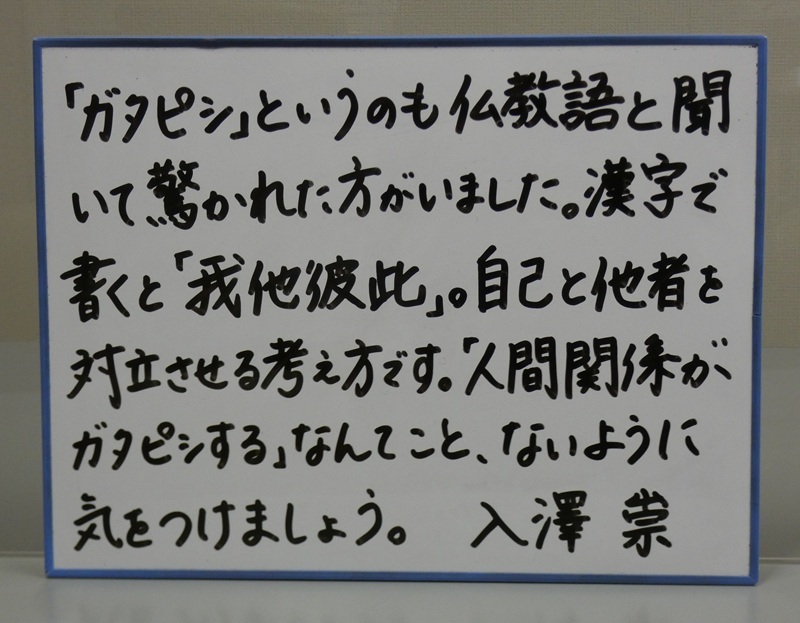 「ガタピシ」というのも仏教語と聞
いて驚かれた方がいました。漢字で
書くと「我他彼此」。自己と他者を
対立させる考え方です。「人間関係が
ガタピシする」なんてこと、ないように
気をつけましょう。 入澤 崇